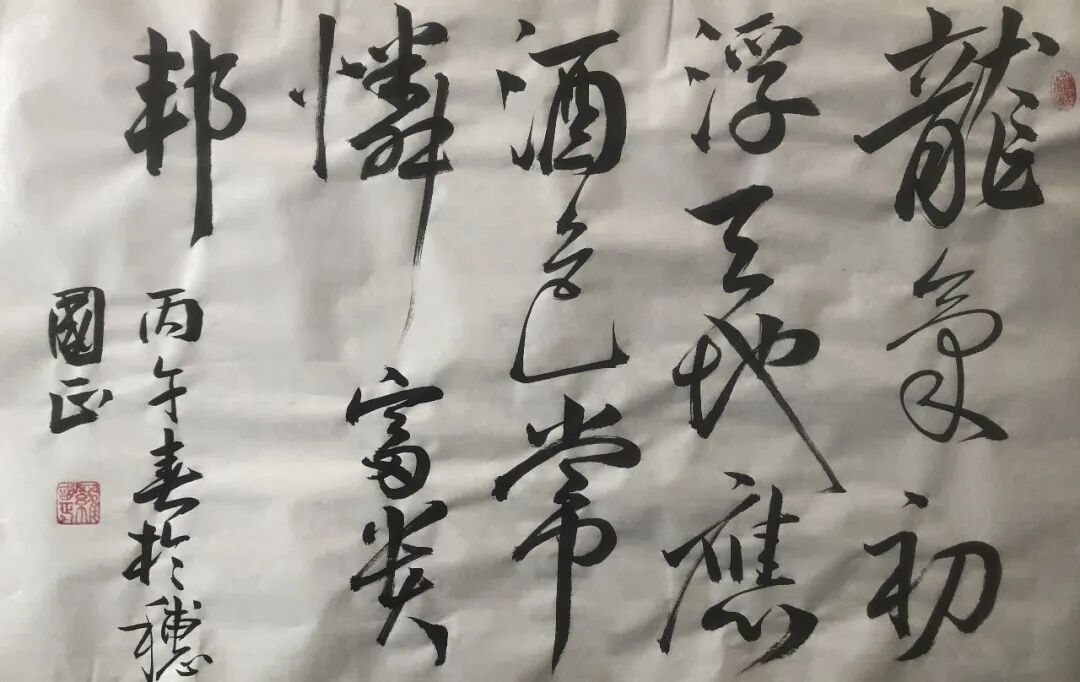 龍氣初
浮天地應
酒色常
憐富貴
邦 丙午春於穗
國正